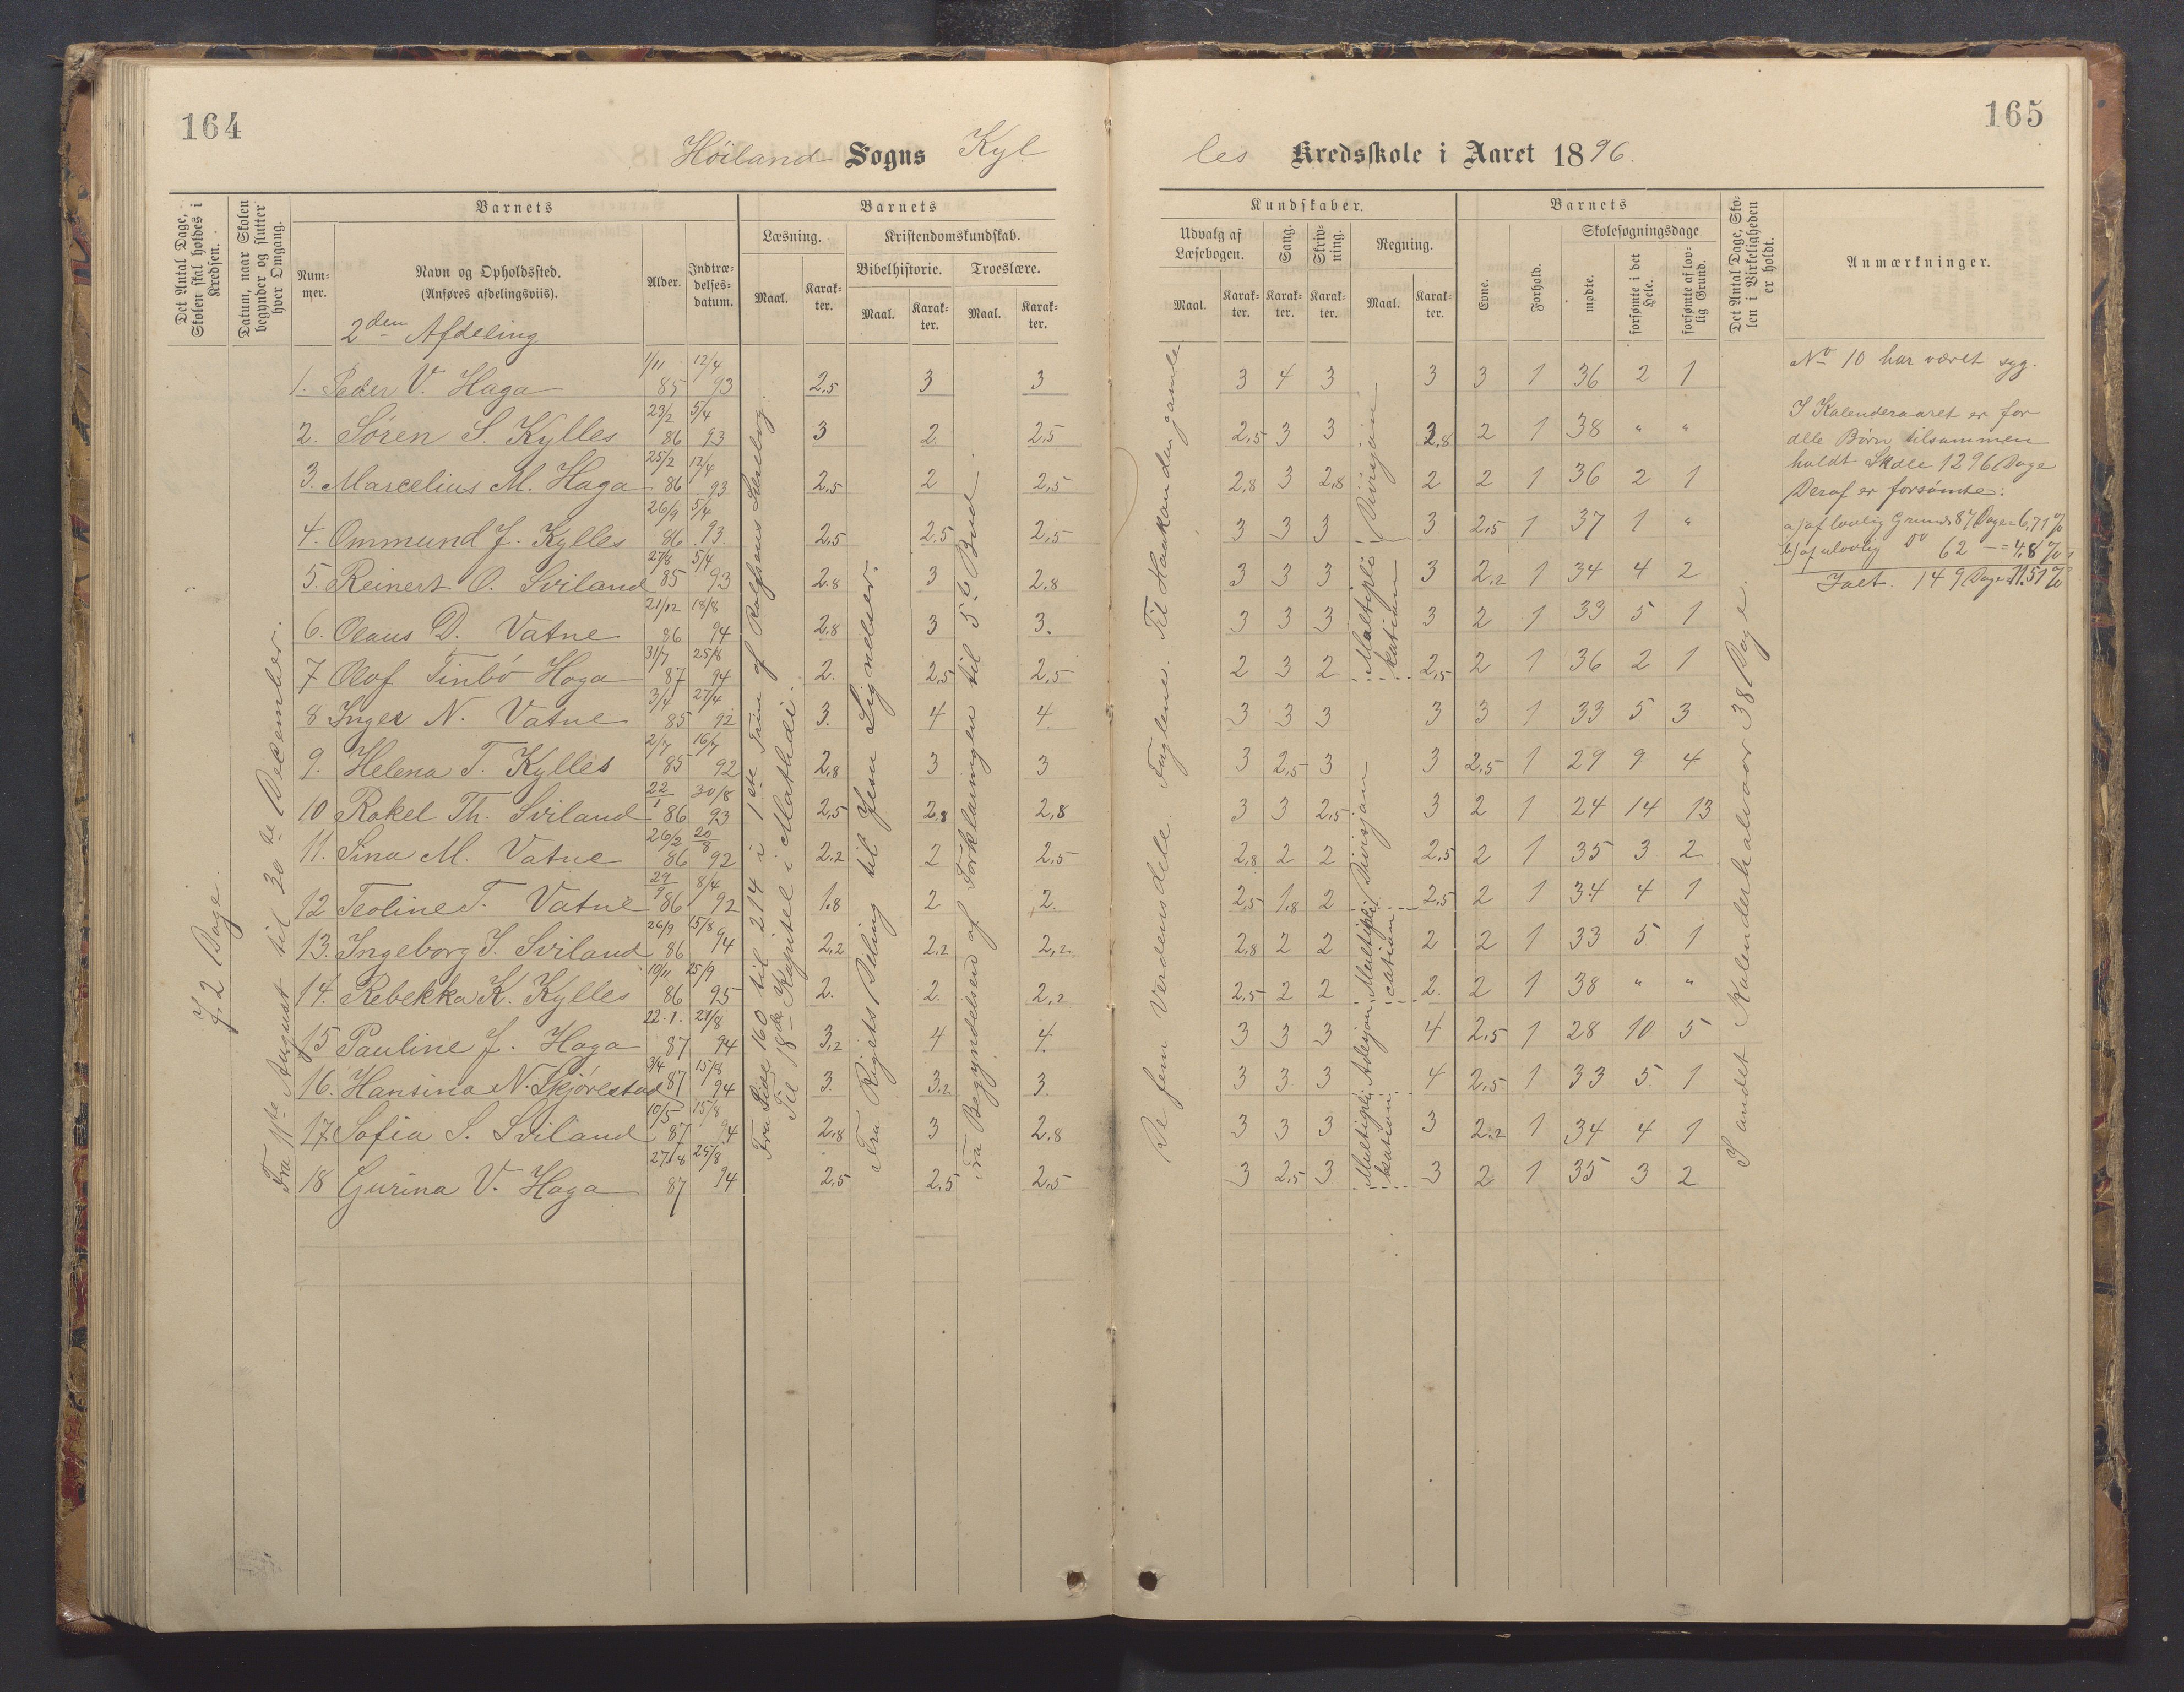 164
165
Höiland Sogns Kyl
les Kredsskole i Aaret 1896.
Det Antal Dage, Skolen skal holdes i Kredsen.
Datum, naar Skolen begynder og slutter hver Omgang.
Barnets
Num-mer.
Navn og Opholdssted.
(Anføres afdelingsviis).
Alder.
Indtræ-delses-datum.
Barnets
Læsning.
Maal.
Karak-ter.
Kristendomskundskab.
Bibelhistorie.
Maal.
Karak-ter.
Troeslære.
Maal.
Karak-ter.
Kundskaber.
Udvalg af Læsebogen.
Maal.
Karak-ter.
Sang.
Karak-ter.
Skriv-ning.
Karak-ter.
Regning.
Maal.
Karak-ter.
Barnets
Evne.
Forhold.
Skolesøgningsdage.
mødte.
forsømte i det Hele.
forsømte af lov-lig Grund.
Det Antal Dage, Sko-len i Virkeligheden er holdt.
Anmærkninger.
2den Afdeling
1. Peder V. Haga 1/11 85 12/4 93 2,5 3 3 3 4 3 3 3 1 36 2 1
2. Sören S. Kylles 23/2 86 5/4 93 3 2. 2,5 2,5 3 3 2,8 2 1 38 " "
3. Marcelius M. Haga 25/2 86 12/4 93 2,5 2 2,5 2,8 3 2,8 2 2 1 36 2 1
4. Ommund J. Kylles 26/9 86 5/4 93 2,5 2,5 2,5 3 3 3 3 2,5 1 37 1 "
5. Reinert O. Sviland 27/8 85 5/4 93 2,8 3 2,8 3 3 3 3 2,2 1 34 4 2
6. Olaus D. Vatne 21/12 86 18/8 94 2,8 3 3. 3 3 3 3 2 1 33 5 1
7 Olaf Tinbö Haga 31/7 87 25/8 94 2. 2,5 2,5 2 3 2 2,5 2 1 36 2 1
8 Inger N. Vatne 3/4 85 27/4 92 3. 4 4. 3 3 3 3 3 1 33 5 3
9. Helena T. Kylles 2/7 85 16/7 92 2,8 3 3 3 2,5 3 3 2,5 1 29 9 4
10 Rakel Th. Sviland 22/1 86 30/8 93 2,5 2,8 2,8 3 3 2,5 3 2 1 24 14 13
11. Sina M. Vatne 26/2 86 20/8 92 2,2 2 2,5 2,8 2 2 2,5 2 1 35 3 2
12 Teoline T. Vatne 29/9 86 8/4 92 1,8 2 2. 2,5 1,8 2 2,5 2 1 34 4 1
13. Ingeborg J. Sviland 26/9 86 15/8 94 2,2 2,2 2,2 2,8 2 2 2 2 1 33 5 1
14. Rebekka K. Kylles 10/11 86 25/9 95 2. 2. 2,2 2,5 2 2 2. 2 1 38 " "
15 Pauline J. Haga 22.1. 87 21/8 94 3,2 4 4. 3 3 3 4 2,5 1 28 10 5
16. Hansina N. Skjörestad 3/4 87 15/8 94 3. 3,2 3. 3 3 3 4 2,5 1 33 5 1
17 Sofia S. Sviland 10/5 87 15/8 94 2,8 3 2,8 3 3 3 3 2,2 1 34 4 1
18 Gurina V. Haga 27/8 87 25/8 94 2,5 2,5 2,5 3 2,5 3 3 2 1 35 3 2
72 Dage.
Fra 11te August til 20de December.
Fra Side 160 til 214 i 1ste Trin af Rolfsens Læsebog.
Til 18de Kapitel i Mathdi.
Fra Rigets Deling til Jesu Lignelser.
Fra Begyndelsen af Forklaringen til 5te Bud.
De fem Verdensdele. Fuglene. Til Haakon den gamle.
Multipli-kation Divisjon
Multipli-cation Divisjon
Multipli-kation Adisjon
I andet Kalenderhalvaar 38 Dage.
No 10 har været syg.
I Kalenderaaret er for
alle Börn tilsammen
holdt Skole 1296 Dage
Deraf er forsömte:
a) af lovlig Grund 87 Dage = 6,71%
b) af ulovlig Do 62 — = 4,8%
Ialt. 149 Dage = 11,51%